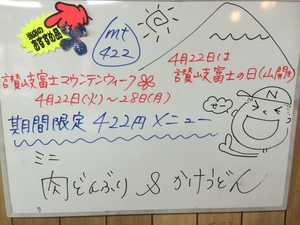 当店の
おすすめ品
mt
422
4月22日は
讃岐富士の日(山開き)
讃岐富士マウンテンウィーク
4月22日(火)〜28日(月)
ぜ〜
N
期間限定 422円メニュー
ミニ
肉どんぶり & かけうどん